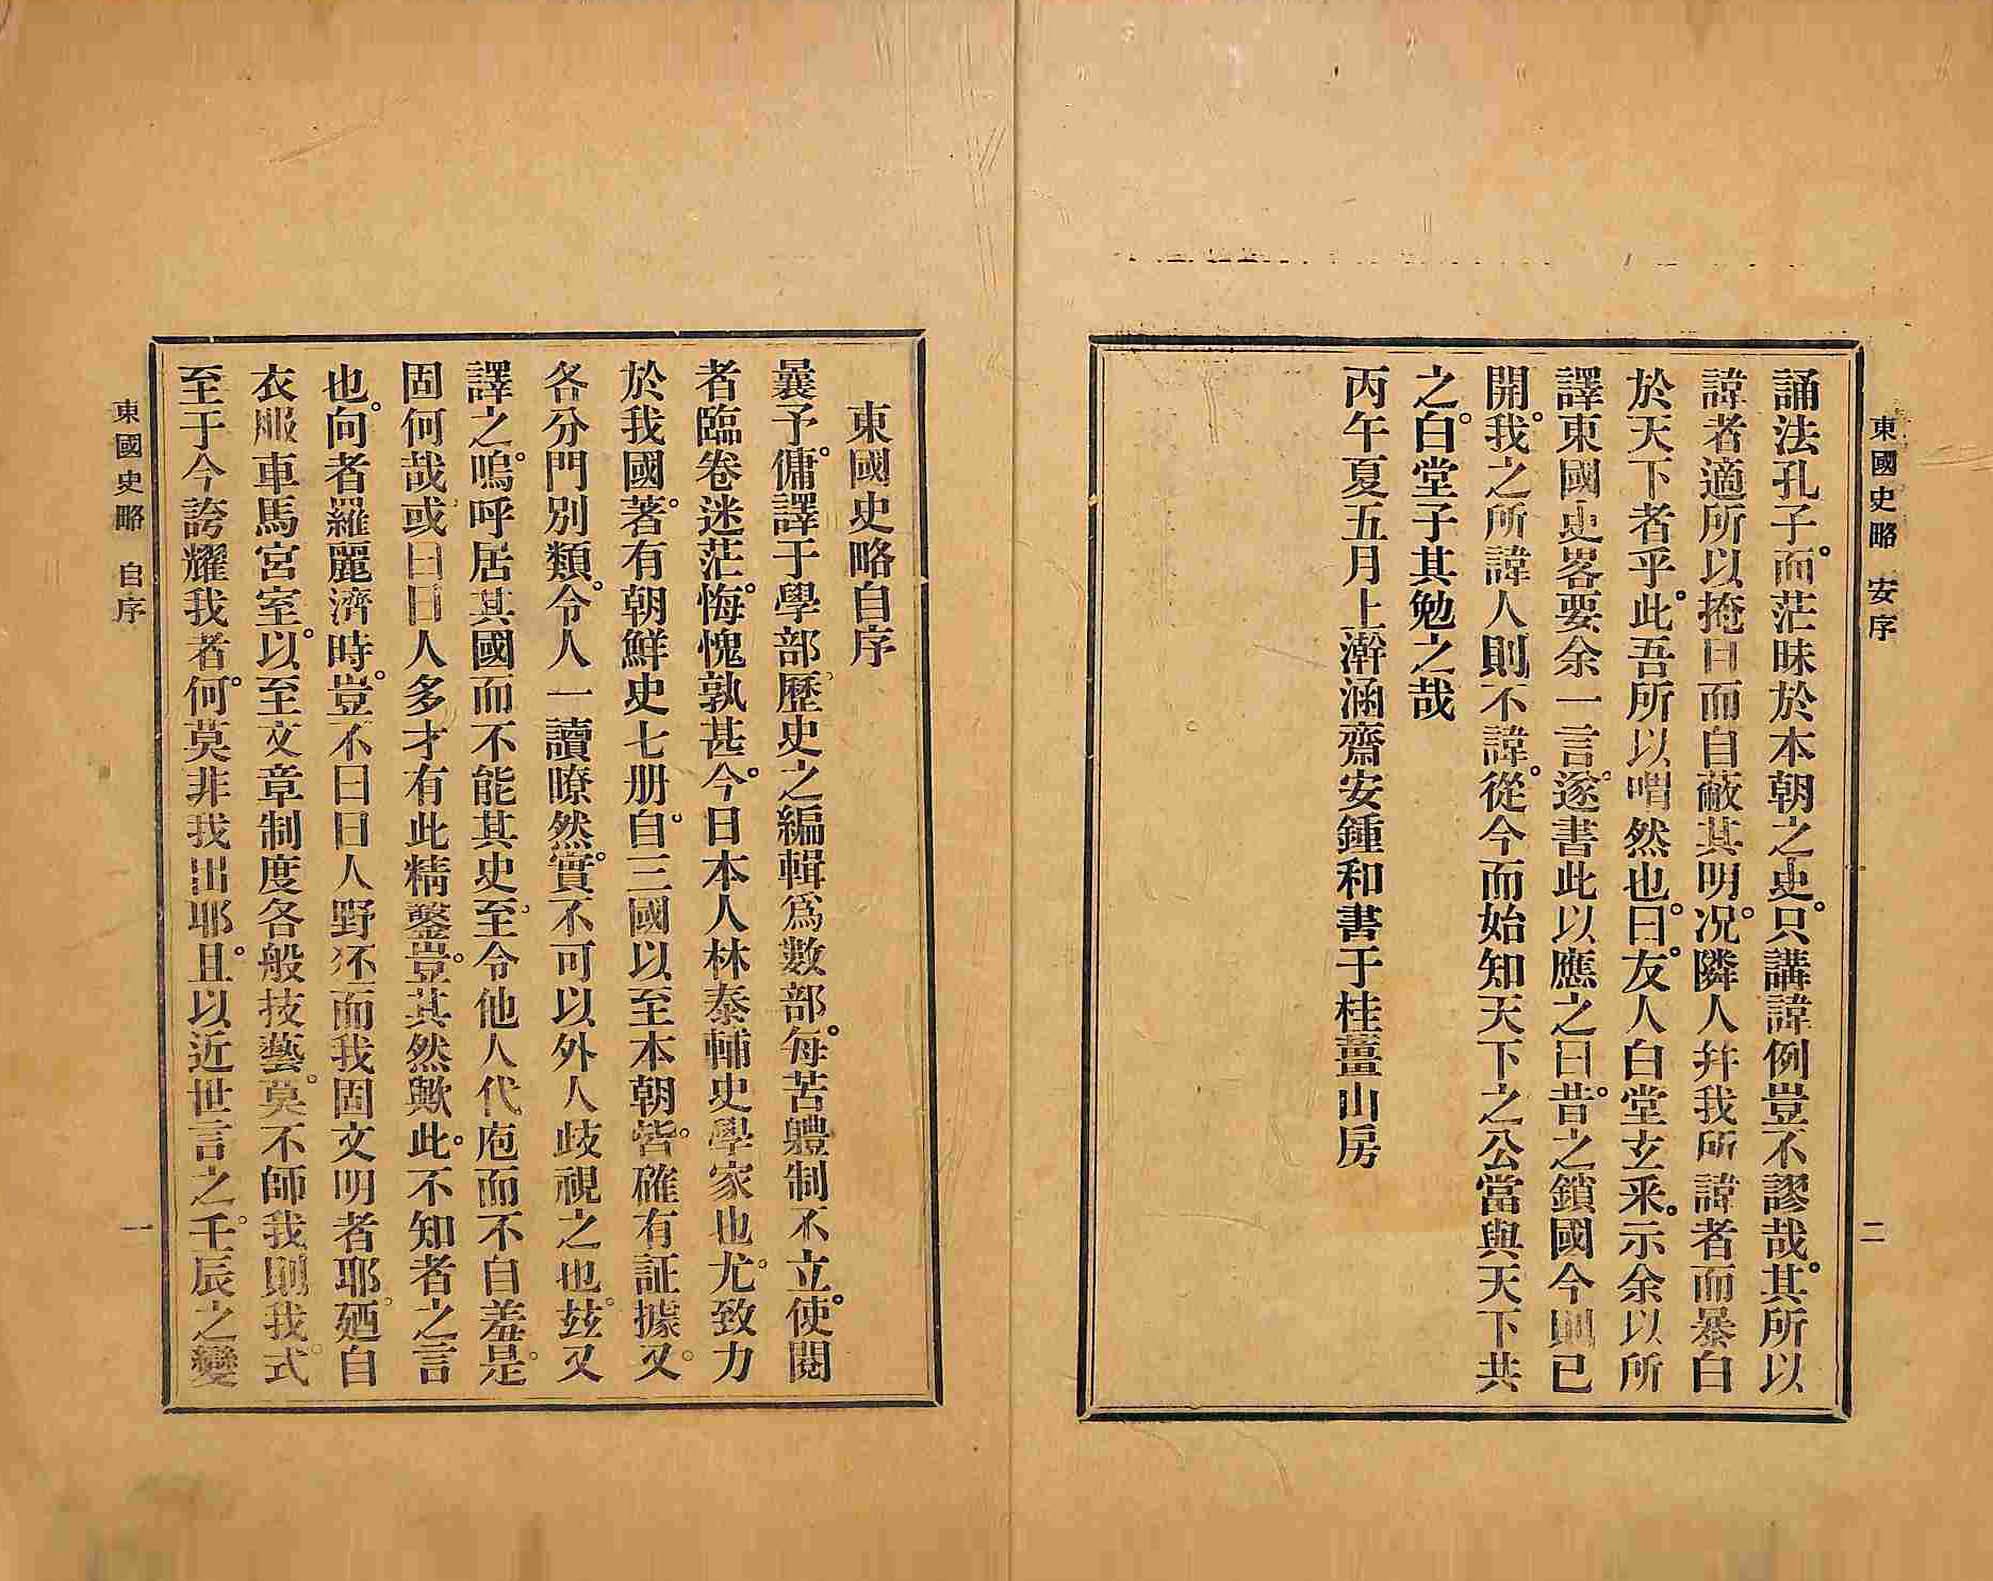 東國史略 安序
二
誦法孔子。而茫昧於本朝之史。只講諱例豈不謬哉。其所以
諱者適所以掩目而自蔽其明。况隣人幷我所諱者而暴白
於天下者乎。此吾所以喟然也。曰。友人白堂玄釆。示余以所
譯東國史畧要余一言。遂書此以應之曰。昔之鎖國今則已
開。我之所諱人則不諱。從今而始知天下之公當與天下共
之。白堂子其勉之哉
丙午夏五月上澣涵齋安鍾和書于桂薑山房
東國史略自序
曩予。傭譯于學部。歷史之編輯爲數部。每苦軆制不立。使閱
者臨卷迷茫。悔愧孰甚。今日本人林泰輔史學家也。尤致力
於我國。著有朝鮮史七册。自三國以至本朝。皆確有証據。又
各分門別類。令人一讀瞭然。實不可以外人歧視之也。玆又
譯之。嗚呼居其國而不能其史。至令他人代庖而不自羞。是
固何哉。或曰日人多才有此精鑿。豈其然歟。此不知者之言
也。向者羅麗濟時。豈不曰日人野狉而我固文明者耶。廼自
衣服車馬宮室。以至文章制度各般技藝。莫不師我則我。式
至于今誇耀我者。何莫非我出耶。且以近世言之。壬辰之變
東國史略 自序
一